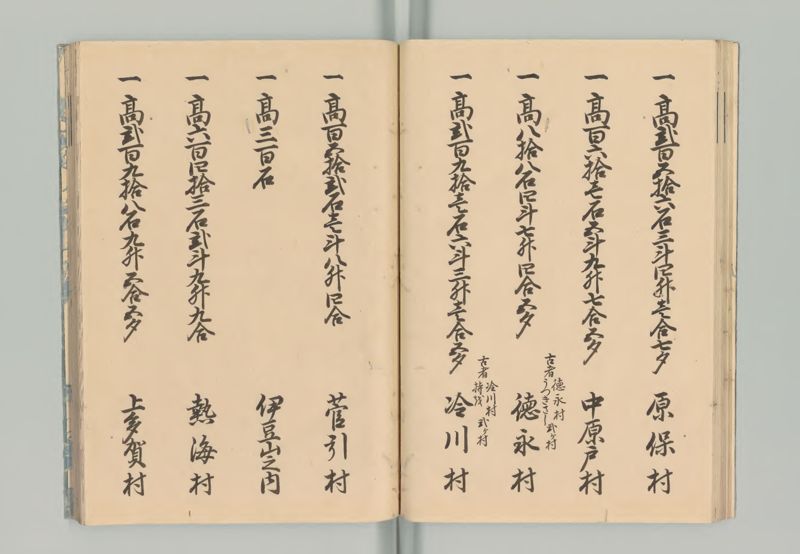 一 高弐百五拾六石三斗四升壱合七夕 原保村
一 高百六拾壱石五斗九升七合五夕 中原戸村
古者 徳永村 うつきさし 弐ケ村
一 高八拾八石四斗七升四合五夕 徳永村
古者 冷川村 弐ケ村
一 高弐百九拾壱石六斗三升壱合五夕 冷川村
一 高百五拾弐石壱斗八升四合 菅引村
一 高三百石 伊豆山之内
一 高六百四拾三石弐斗九升九合 熱海村
一 高弐百九拾八石九升五合五夕 上多賀村